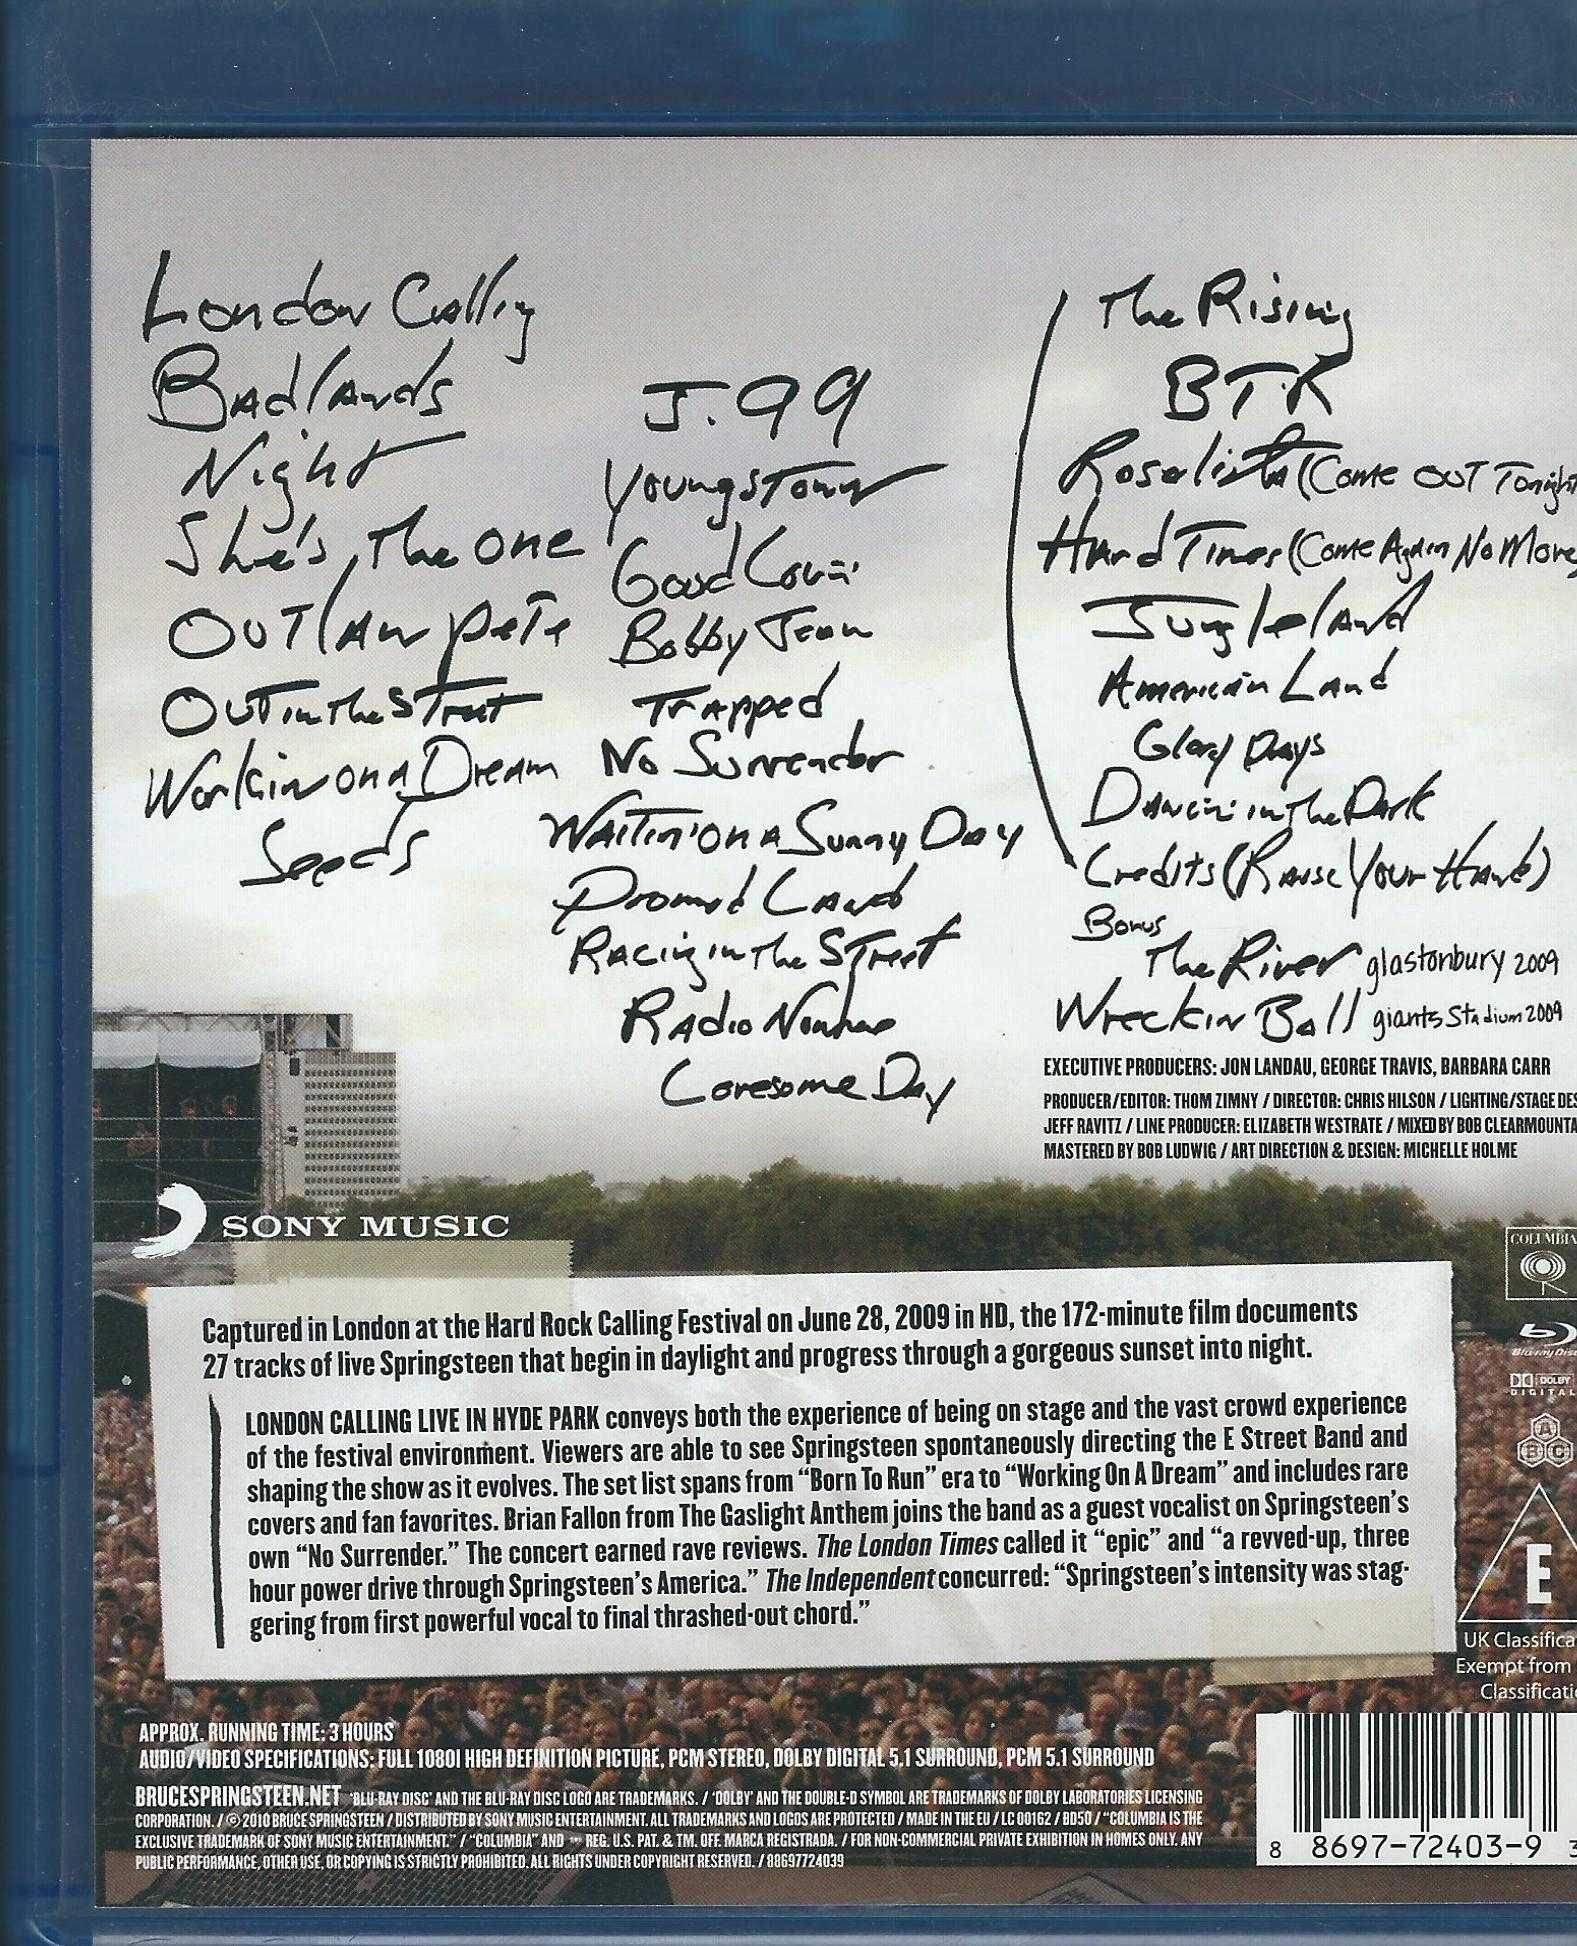 London Calling
Badlands
Night
She's The One
Outlaw Pete
Out in the Street
Workin on a Dream
Seeds
J. 99
Youngstown
Good Lovin'
Bobby Jean
Trapped
No Surrender
Waitin' on a Sunny Day
Promised Land
Racing in the Street
Radio Nowhere
Lonesome Day
The Rising
BTR
Rosalita (Come Out Tonight
Hard Times (Come Again No More)
Jungleland
American Land
Glory Days
Dancin' in the Dark
Credits (Raise Your Hand)
Bonus
The River glastonbury 2009
Wreckin Ball giants Stadium 2009
EXECUTIVE PRODUCERS: JON LANDAU, GEORGE TRAVIS, BARBARA CARR
PRODUCER/EDITOR: THOM ZIMNY / DIRECTOR: CHRIS HILSON / LIGHTING/STAGE DES
JEFF RAVITZ / LINE PRODUCER: ELIZABETH WESTRATE / MIXED BY BOB CLEARMOUNTA
MASTERED BY BOB LUDWIG / ART DIRECTION & DESIGN: MICHELLE HOLME
SONY MUSIC
COLUMBIA
Captured in London at the Hard Rock Calling Festival on June 28, 2009 in HD, the 172-minute film documents
27 tracks of live Springsteen that begin in daylight and progress through a gorgeous sunset into night.
LONDON CALLING LIVE IN HYDE PARK conveys both the experience of being on stage and the vast crowd experience
of the festival environment. Viewers are able to see Springsteen spontaneously directing the E Street Band and
shaping the show as it evolves. The set list spans from “Born To Run” era to “Working On A Dream” and includes rare
covers and fan favorites. Brian Fallon from The Gaslight Anthem joins the band as a guest vocalist on Springsteen's
own “No Surrender.” The concert earned rave reviews. The London Times called it “epic” and “a revved-up, three
hour power drive through Springsteen's America.” The Independent concurred: “Springsteen's intensity was stag-
gering from first powerful vocal to final thrashed-out chord.”
Blu-ray Disc
DOLBY
DIGITAL
A
B C
E
UK Classifica
Exempt from
Classificati
APPROX. RUNNING TIME: 3 HOURS
AUDIO/VIDEO SPECIFICATIONS: FULL 1080I HIGH DEFINITION PICTURE, PCM STEREO, DOLBY DIGITAL 5.1 SURROUND, PCM 5.1 SURROUND
BRUCESPRINGSTEEN.NET 'BLU-RAY DISC' AND THE BLU-RAY DISC LOGO ARE TRADEMARKS. / 'DOLBY' AND THE DOUBLE-D SYMBOL ARE TRADEMARKS OF DOLBY LABORATORIES LICENSING
CORPORATION. / © 2010 BRUCE SPRINGSTEEN / DISTRIBUTED BY SONY MUSIC ENTERTAINMENT. ALL TRADEMARKS AND LOGOS ARE PROTECTED / MADE IN THE EU / LC 00162 / BD50 / “COLUMBIA IS THE
EXCLUSIVE TRADEMARK OF SONY MUSIC ENTERTAINMENT.” / “COLUMBIA” AND REG. U.S. PAT. & TM. OFF. MARCA REGISTRADA. / FOR NON-COMMERCIAL PRIVATE EXHIBITION IN HOMES ONLY. ANY
PUBLIC PERFORMANCE, OTHER USE, OR COPYING IS STRICTLY PROHIBITED. ALL RIGHTS UNDER COPYRIGHT RESERVED. / 88697724039
8 8697-72403-9 3